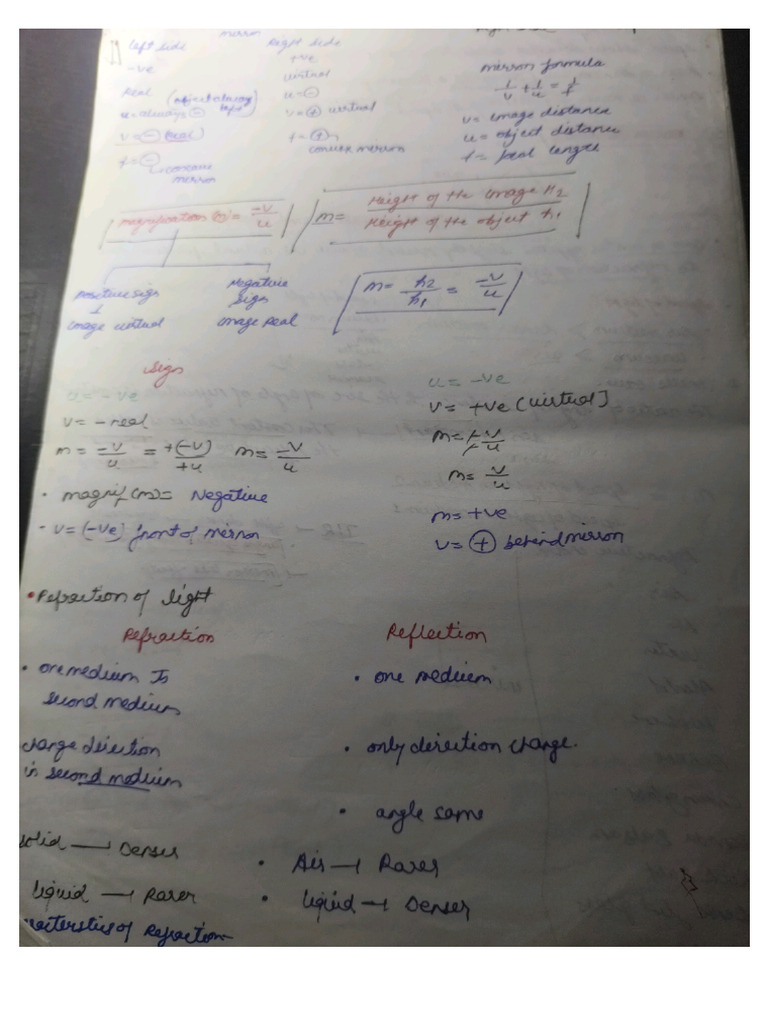 mirror
left side
-ve
Real (object always left)
u = always ⊖
v = ⊖ Real)
f = ⊖
concave mirror
Right side
+ve
virtual
u = ⊖
v = ⊕ virtual
f = ⊕
convex mirror
mirror formula
1/v + 1/u = 1/f
v = image distance
u = object distance
f = focal length
magnification (m) = -v/u
m = Height of the image h2 / Height of the object h1
Positive sign
image virtual
Negative sign
image Real
m = h2/h1 = -v/u
Sign
u = -ve
v = - real
m = -v/u = +(-v)/+u m = -v/u
• magnif (m) = Negative
- v = (-ve) front of mirror
u = -ve
v = +ve (virtual]
m = -v/-u
m = v/u
m = +ve
v = ⊕ behind mirror
• Refraction of light
Refraction
• one medium to
second medium
change direction
in second medium
solid → Denser
liquid → Rarer
Reflection
• one medium
• only direction change.
• angle same
• Air → Rarer
• liquid → Denser
of Refraction